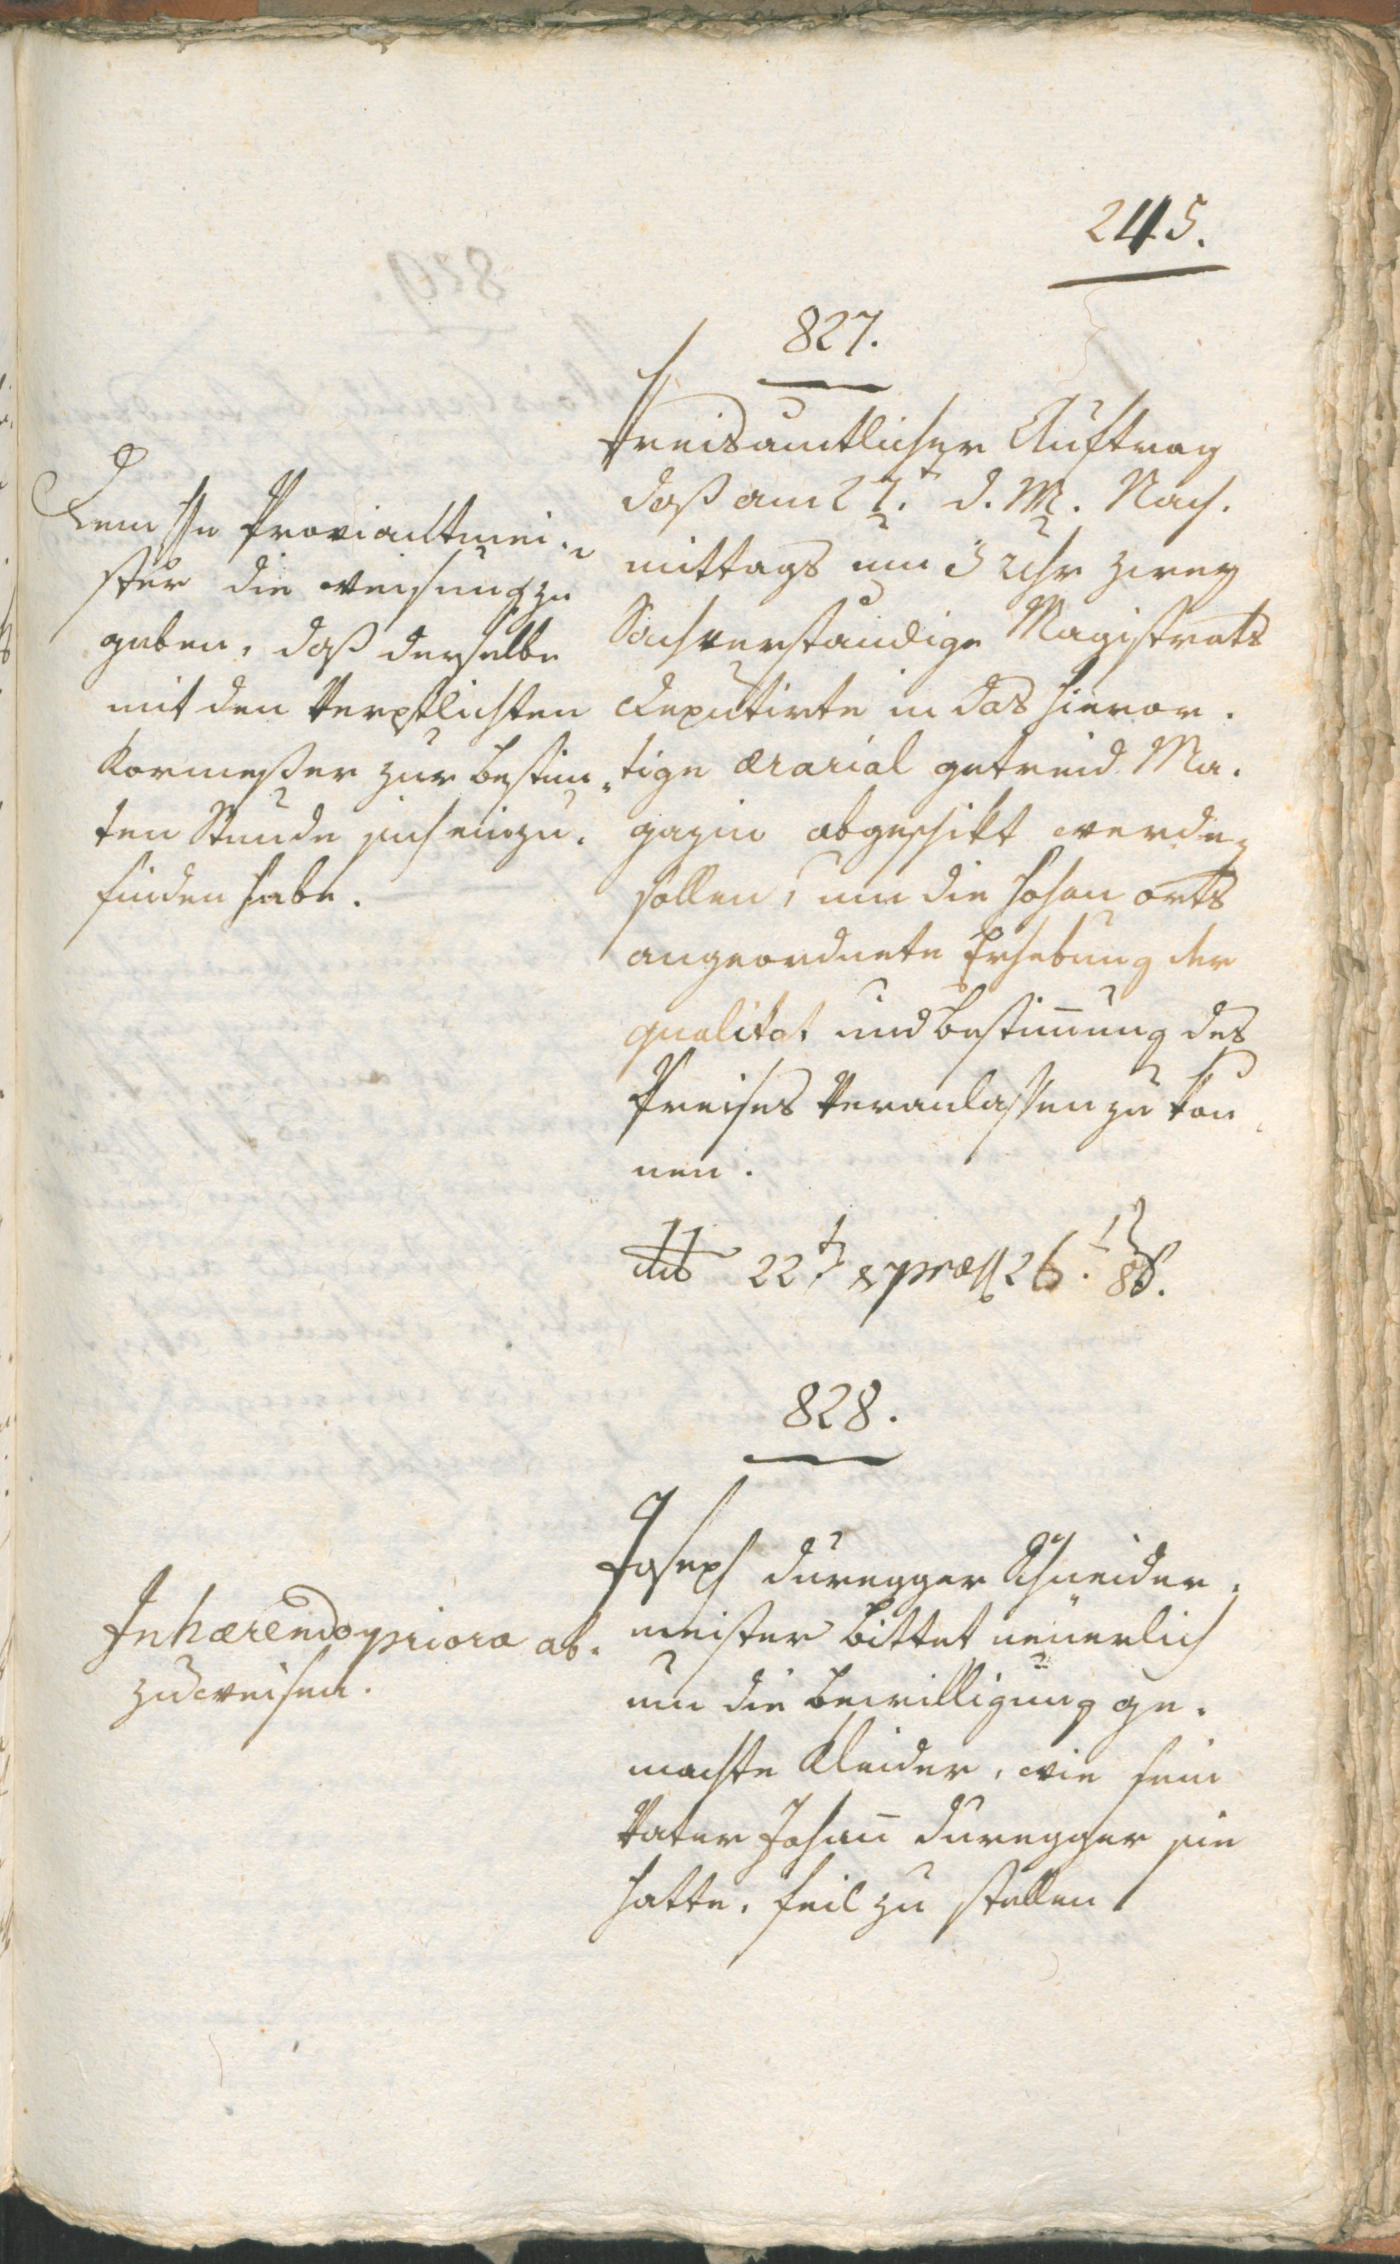 245.
827.
Kreisamtlicher Auftrag
daß am 27.t d. M. Nach.
mittags um 3 Uhr zwey
Sachverständige Magistrats
Deputirte in das hieror.
tige ærarial getreid Ma.
gazin abgeschikt werden
sollen, um die hohen orts
angeordnete Erhebung der
qualitæt und Bestimmung des
Preises Veranlassen zu kön
nen.
22t & præss 26.
Dem Hn Proviantmei.
ster die weisung zu
geben, daß derselbe
mit den Verpflichten
Kornmeßer zur bestim„
ten Stunde sich einzu.
finden habe.
828.
Joseph Duregger Schneider.
meister bittet neuerlich
um die Bewilligung ge.
machte Kleider, wie sein
Vater Johann Duregger sie
hatte, feil zu stellen
Inhærendo priora ab.
zuweisen.